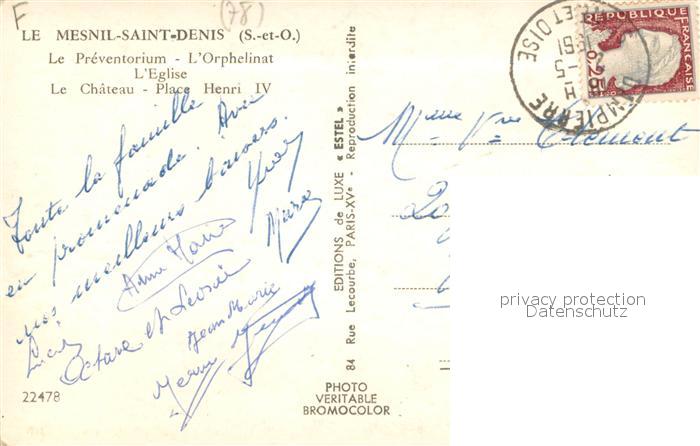 F
(78)
LE MESNIL-SAINT-DENIS (S.-et-O.)
Le Préventorium - L'Orphelinat
L'Eglise
Le Château - Place Henri IV
Toute la famille
en promenade. Avec
nos meilleurs baisers.
Yvon
Anne Marie
Lucie
Octave et
Jean Marie
22478
PHOTO
VERITABLE
BROMOCOLOR
EDITIONS de LUXE « ESTEL »
84 Rue Lecourbe, PARIS-XVe - Reproduction interdite
REPUBLIQUE FRANÇAISE
0,25
DAMPIERRE
ET OISE
-5
1961
Mme Vve Clément
privacy protection
Datenschutz